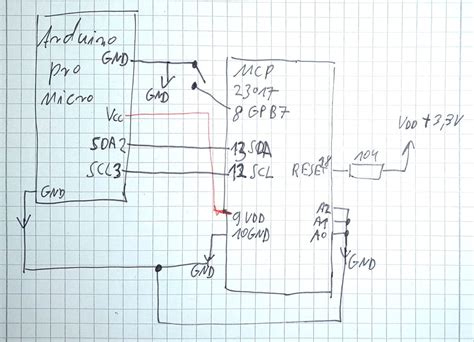 Arduino
pro
Micro
GND
GND
Vcc
SDA2
SCL3
GND
MCP
23017
8 GPB7
13 SDA
12 SCL
RESET 18
104
VDD +3,3V
9 VDD
10 GND
GND
A2
A1
A0
GND